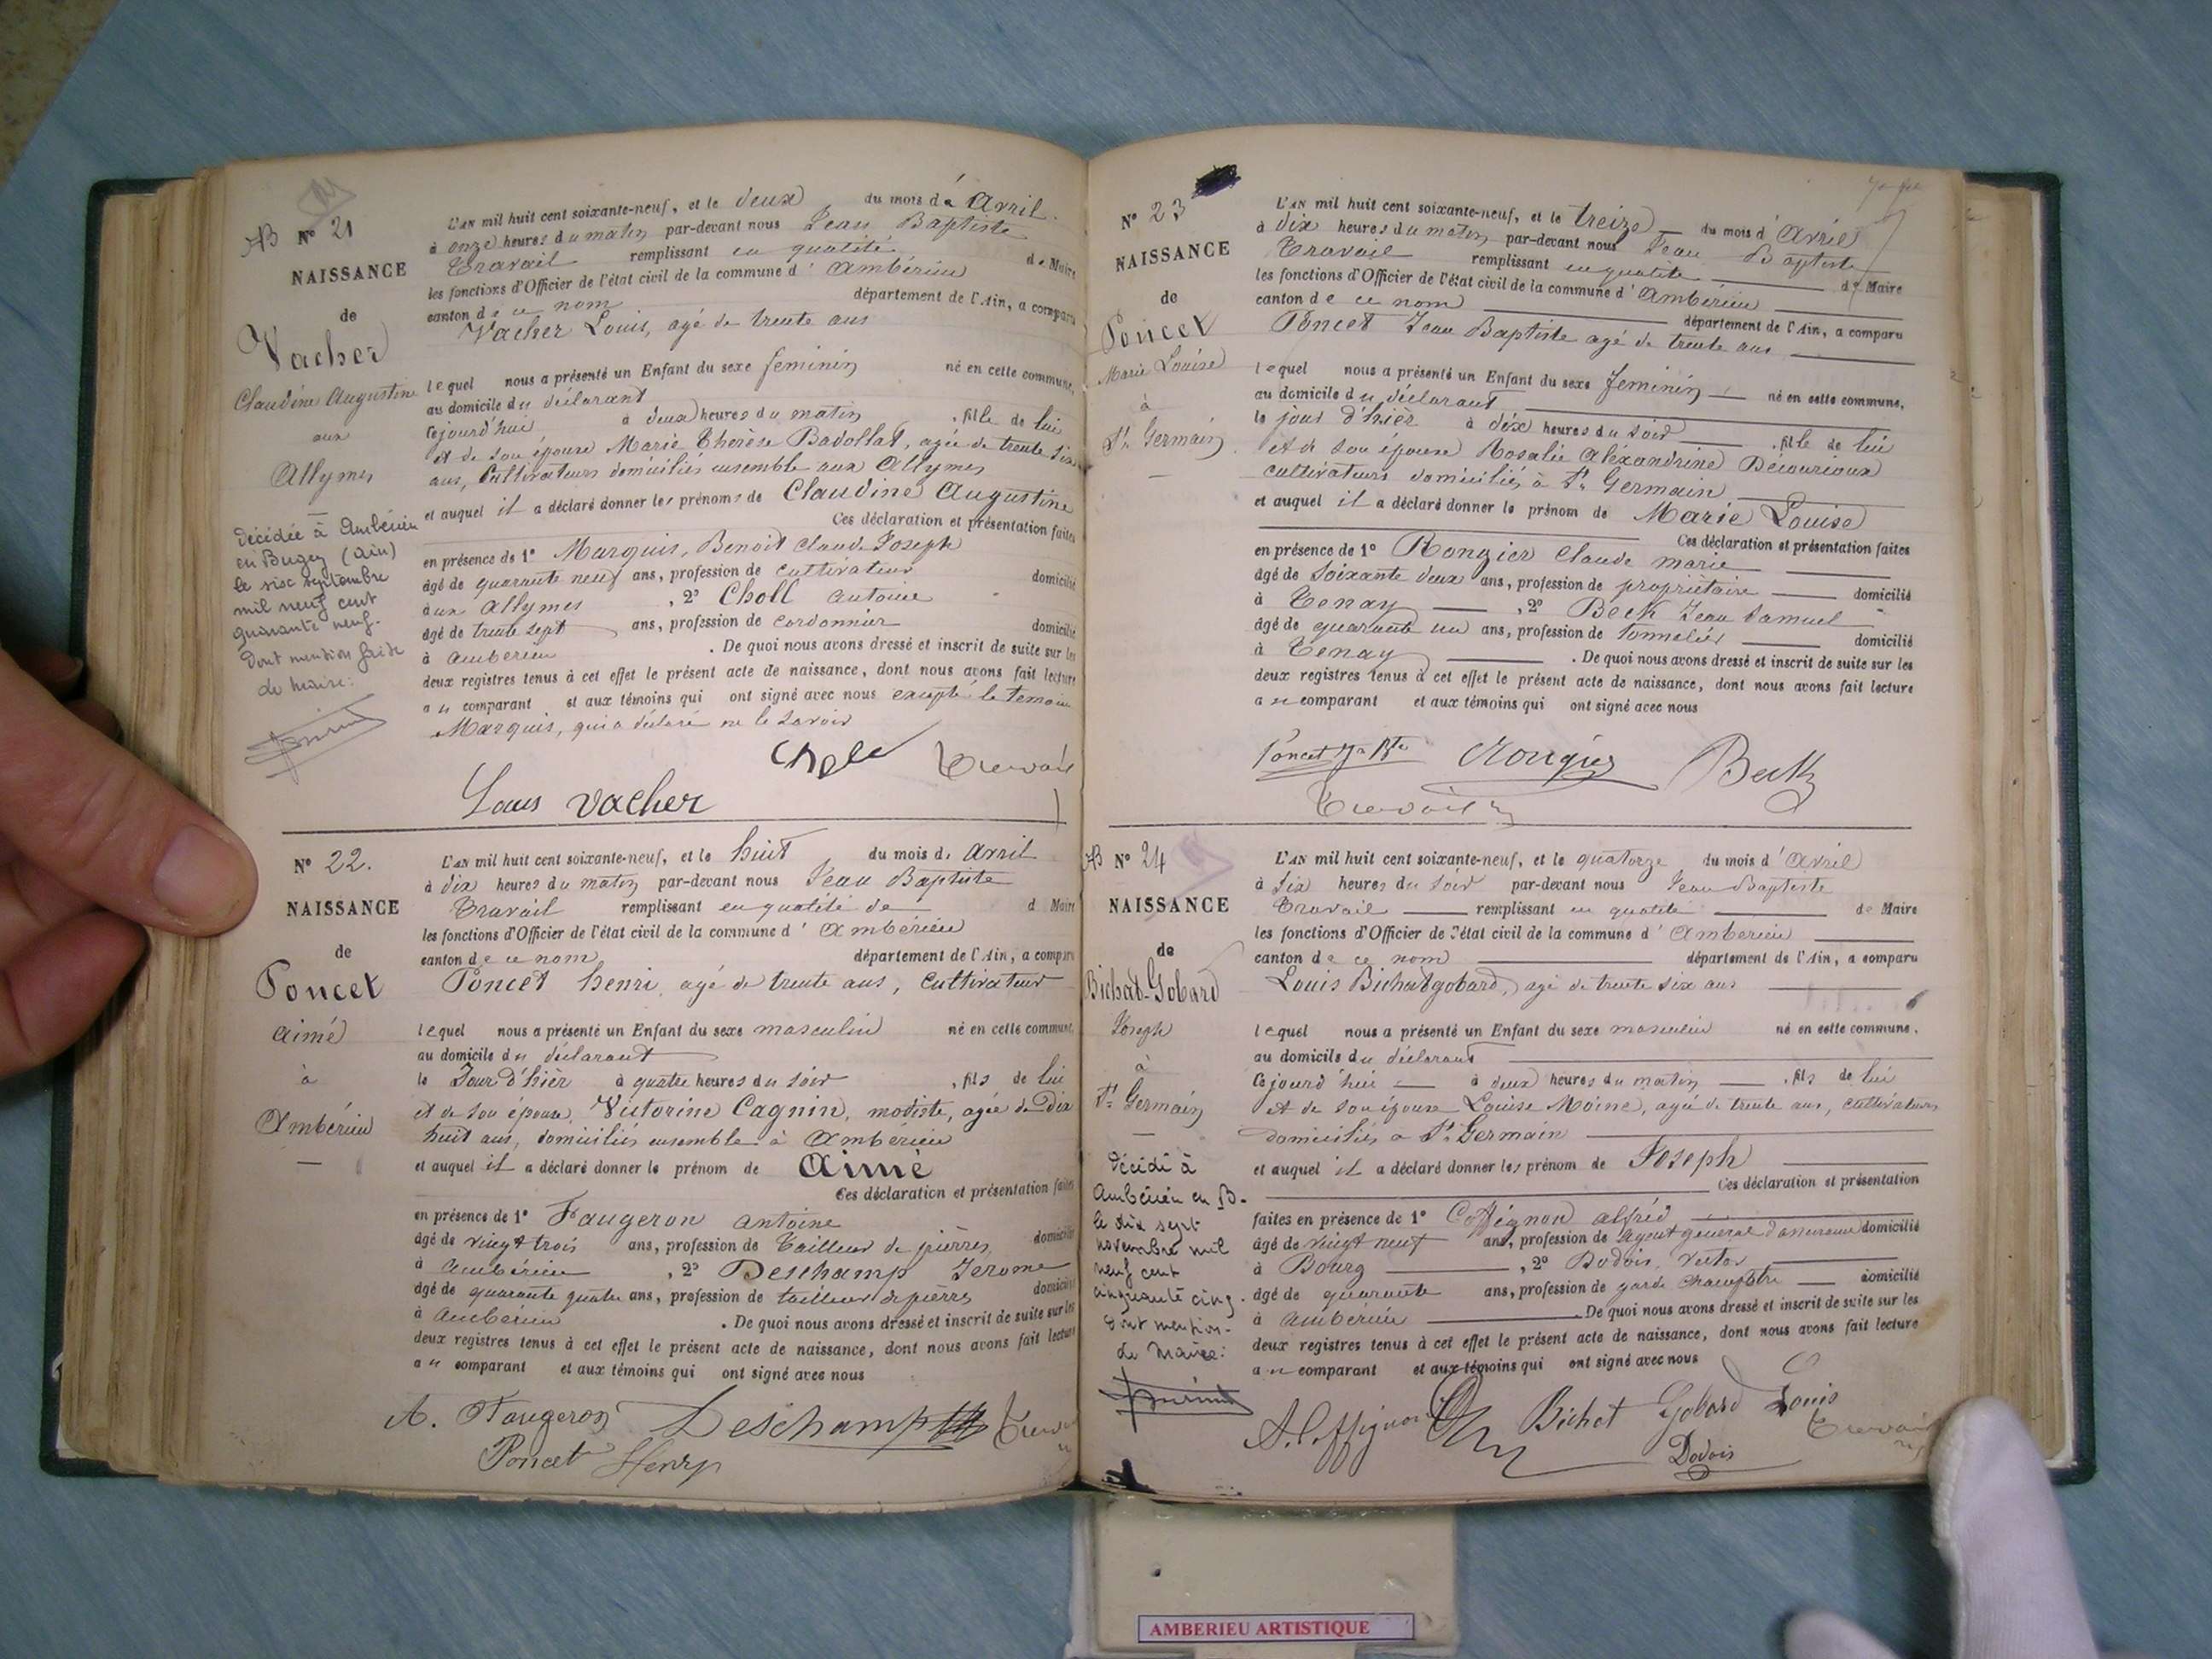 N° 21
NAISSANCE
de
Vacher
Claudine Augustine
aux
Allymes
Décédée à Ambérieu
en Bugey (Ain)
le six septembre
mil neuf cent
quarante neuf.
Dont mention faite
Le maire:
L'AN mil huit cent soixante-neuf, et le deux du mois d'Avril.
à onze heures du matin par-devant nous Jean Baptiste
Travail remplissant en qualité de Maire
les fonctions d'Officier de l'état civil de la commune d'Ambérieu
canton de ce nom département de l'Ain, a comparu
Vacher Louis, agé de trente ans
lequel nous a présenté un Enfant du sexe feminin né en cette commune,
au domicile du déclarant
cejourd'hui à deux heures du matin, fille de lui
et de son épouse Marie Thérèse Badollat, agée de trente six
ans, Cultivateurs domiciliés ensemble aux Allymes
et auquel il a déclaré donner les prénoms de Claudine Augustine
Ces déclaration et présentation faites
en présence de 1° Marquis, Benoit Claude Joseph
âgé de quarante neuf ans, profession de cultivateur domicilié
aux Allymes, 2° Choll antoine
âgé de trente sept ans, profession de cordonnier domicilié
à Ambérieu. De quoi nous avons dressé et inscrit de suite sur les
deux registres tenus à cet effet le présent acte de naissance, dont nous avons fait lecture
au comparant et aux témoins qui ont signé avec nous excepté le temoin
Marquis, qui a déclaré ne le savoir
Choll Travail
Louis Vacher
N° 22.
NAISSANCE
de
Poncet
aimé
à
Ambérieu
L'AN mil huit cent soixante-neuf, et le huit du mois d'Avril
à dix heures du matin par-devant nous Jean Baptiste
Travail remplissant en qualité de d Maire
les fonctions d'Officier de l'état civil de la commune d'Ambérieu
canton de ce nom département de l'Ain, a comparu
Poncet henri, agé de trente ans, Cultivateur
lequel nous a présenté un Enfant du sexe masculin né en cette commune,
au domicile du déclarant
le Jour d'hièr à quatre heures du soir, fils de lui
et de son épouse, Victorine Cagnin, modiste, agée de Dix
huit ans, domiciliés ensemble à Ambérieu
et auquel il a déclaré donner le prénom de Aimé
Ces déclaration et présentation faites
en présence de 1° Faugeron antoine
âgé de vingt trois ans, profession de tailleur de pierres, domicilié
à Ambérieu, 2° Deschamp Jerome
âgé de quarante quatre ans, profession de tailleur de pierres domicilié
à Ambérieu. De quoi nous avons dressé et inscrit de suite sur les
deux registres tenus à cet effet le présent acte de naissance, dont nous avons fait lecture
au comparant et aux témoins qui ont signé avec nous
A. Faugeron Deschamp
Poncet Henry
N° 23
NAISSANCE
de
Poncet
Marie Louise
à
St Germain
L'AN mil huit cent soixante-neuf, et le treize du mois d'Avril
à dix heures du matin par-devant nous Jean Baptiste
Travail remplissant en qualité de Maire
les fonctions d'Officier de l'état civil de la commune d'Ambérieu
canton de ce nom département de l'Ain, a comparu
Poncet Jean Baptiste agé de trente ans
lequel nous a présenté un Enfant du sexe feminin né en cette commune,
au domicile du déclarant
le jour d'hièr à dix heures du soir, fille de lui
et de son épouse Rosalie Alexandrine
cultivateurs domiciliés à St Germain
et auquel il a déclaré donner le prénom de Marie Louise
Ces déclaration et présentation faites
en présence de 1° Rongier Claude marie
âgé de soixante deux ans, profession de propriétaire domicilié
à Tenay, 2° Beck Jean Samuel
âgé de quarante un ans, profession de tonnelier domicilié
à Tenay. De quoi nous avons dressé et inscrit de suite sur les
deux registres tenus à cet effet le présent acte de naissance, dont nous avons fait lecture
au comparant et aux témoins qui ont signé avec nous
Poncet Jn Bte Rongier Beck
Travail
N° 24
NAISSANCE
de
Bichat-Gobard
Joseph
à
St Germain
Décédé à
Ambérieu en B.
le dix sept
novembre mil
neuf cent
cinquante cinq.
Dont mention.
Le Maire:
L'AN mil huit cent soixante-neuf, et le quatorze du mois d'Avril
à six heures du soir par-devant nous Jean Baptiste
Travail remplissant en qualité de Maire
les fonctions d'Officier de l'état civil de la commune d'Ambérieu
canton de ce nom département de l'Ain, a comparu
Louis Bichatgobard, agé de trente six ans
lequel nous a présenté un Enfant du sexe masculin né en cette commune,
au domicile du déclarant
cejourd'hui à deux heures du matin, fils de lui
et de son épouse Louise Moine, agée de trente ans, cultivateurs
domiciliés à St Germain
et auquel il a déclaré donner les prénom de Joseph
Ces déclaration et présentation
faites en présence de 1° Coffignon alfred
âgé de vingt neuf ans, profession de agent général d'assurance domicilié
à Bourg, 2° Dodois, Victor
âgé de quarante ans, profession de garde champêtre domicilié
à Ambérieu. De quoi nous avons dressé et inscrit de suite sur les
deux registres tenus à cet effet le présent acte de naissance, dont nous avons fait lecture
au comparant et aux témoins qui ont signé avec nous
A. Coffignon Bichat Gobard Louis
Dodois Travail
AMBERIEU ARTISTIQUE